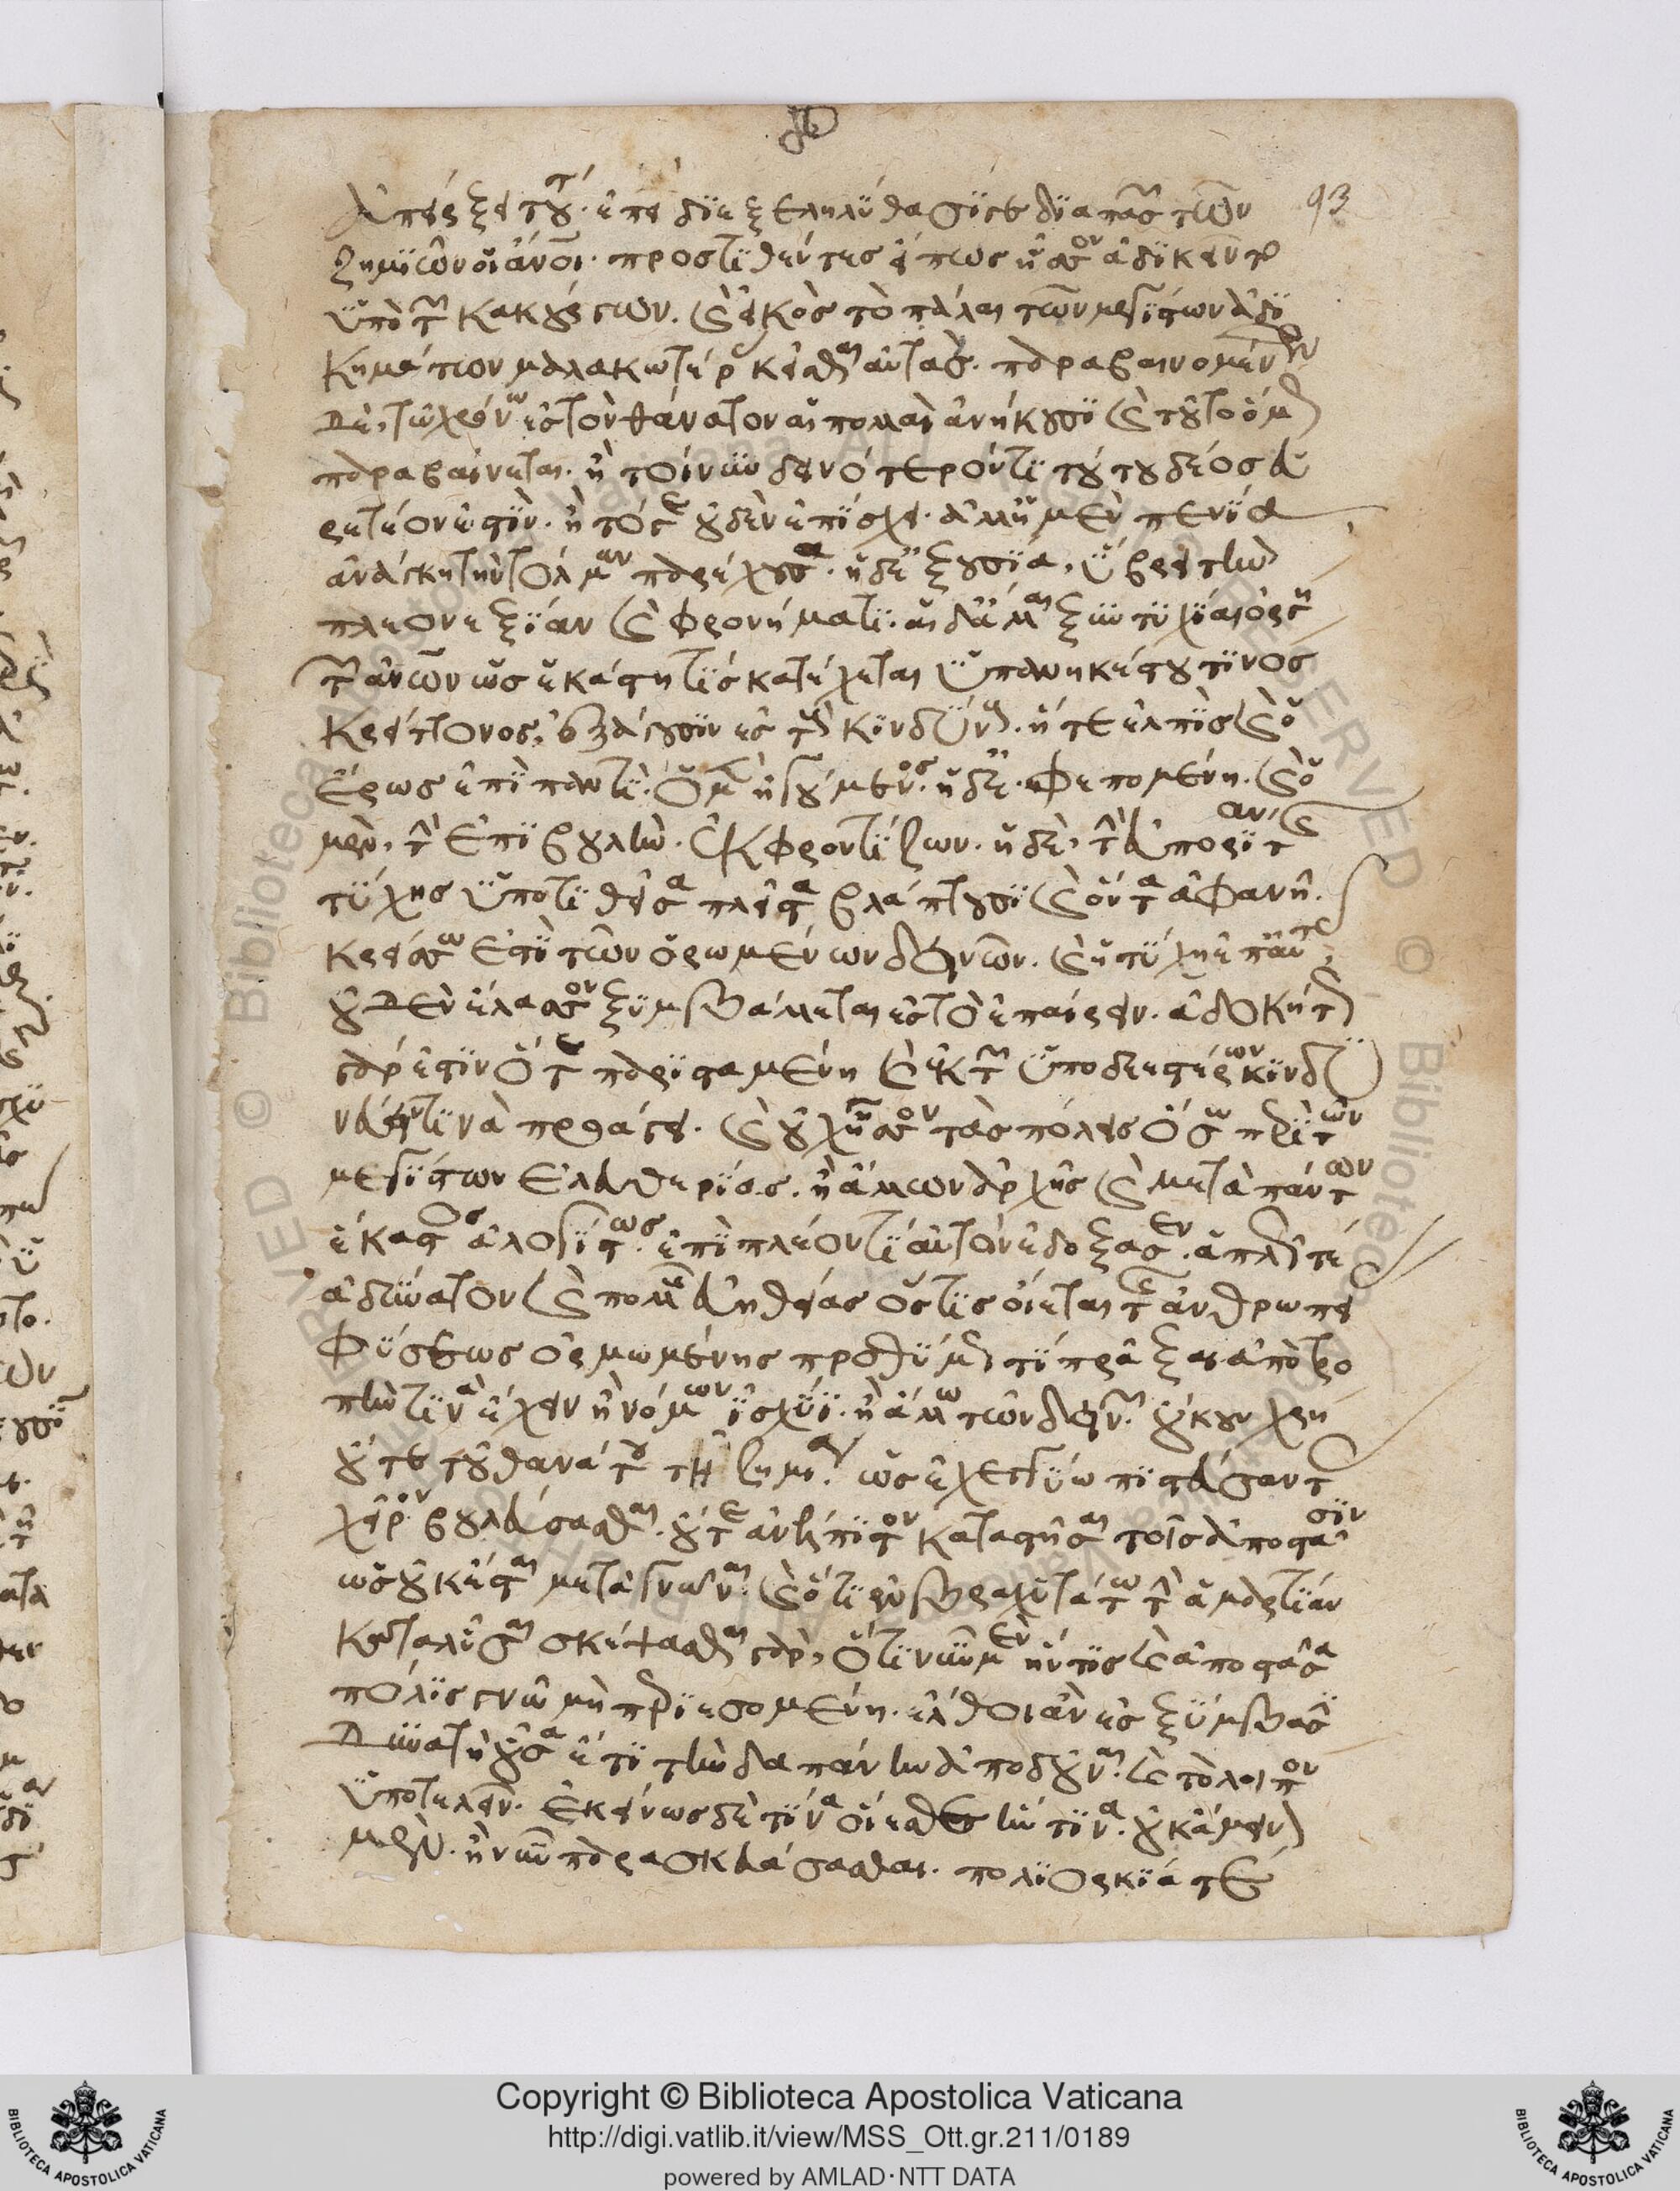 93
ἀπείρξει τούτου. ἐπεὶ διεξεληλύθασί γε διὰ πασῶν τῶν
ζημιῶν οἱ ἄνοι. προστιθέντες εἴ πως ἧσσον ἀδικοῖντο
ὑπὸ τῶν κακούργων. καὶ εἰκὸς τὸ πάλαι τῶν μεγίστων ἀδι
κημάτων μαλακωτέρας κεῖσθαι αὐτάς. παραβαινομένων
δὲ, τῷ χρόνω ἐς τὸν θάνατον αἱ πολλαὶ ἀνήκουσι καὶ τοῦτο ὅμως
παραβαίνεται. ἢ τοίνυν δεινότερόν τι τούτου δέος εὑ
ρετέον ἐστὶν. ἢ τόδε οὐδὲν ἐπίσχει. ἀλλ' ἡ μὲν πενία
ἀνάγκη τὴν τόλμαν παρέχουσα. ἡ δ' ἐξουσία, ὕβρει τὴν
πλεονεξίαν καὶ φρονήματι. αἱ δ' ἄλλαι ξυντυχίαι ὀργῆ
τῶν ἀνων ὡς ἑκάστη τὶς κατέχεται ὑπ' ἀνηκέστου τινος
κρείττονος, ἐξάγουσιν ἐς τοὺς κινδύνους. ἥ τε ἐλπὶς καὶ ὁ
ἔρως ἐπὶ παντὶ. ὁ μὲν ἡγούμενος. ἡ δ' ἐφεπομένη. καὶ ὁ
μὲν, τὴν ἐπιβουλὴν ἐκφροντίζων. ἡ δὲ, τὴν εὐπορίαν τῆς
τύχης ὑποτιθεῖσα πλεῖστα βλάπτουσι καὶ ὄντα ἀφανῆ.
κρείσσω ἐστὶ τῶν ὁρωμένων δεινῶν. καὶ ἡ τύχη ἐπ' αὐτοῖς
οὐδὲν ἔλασσον ξυμβάλλεται ἐς τὸ ἐπαίρειν. ἀδοκήτως
γὰρ ἔστιν ὅτε παρισταμένη καὶ ἐκ τῶν ὑποδεεστέρων κινδυ
νεύειν τινὰ προάγει. καὶ οὐχ ἧσσον τὰς πόλεις ὅσω περὶ τῶν
μεγίστων ἐλευθερίας. ἢ ἄλλων ἀρχῆς καὶ μετὰ πάντων
ἕκαστος ἀλογίστως. ἐπὶ πλέον τι αὐτὸν ἐδόξασεν. ἁπλῶς τέ
ἀδύνατον καὶ πολλῆς εὐηθείας ὅστις οἴεται τῆς ἀνθρωπεί
φύσεως ὁρμωμένης προθύμως τί πρᾶξαι ἀποτρο
πήν τινα ἔχειν ἢ νόμων ἰσχύϊ. ἢ ἄλλω τῶν δεινῶν. οὔκουν χρὴ
οὔτε τοῦ θανάτου τῇ ζημία ὡς ἐχεγγύω πιστεύσαντας
χεῖρον βουλεύσασθαι. οὔτε ἀνέλπιστον καταστῆσαι τοῖς ἀποστᾶσιν
ὡς οὐκ ἔσται μεταγνῶναι. καὶ ὅτι ἐν βραχυτάτω τὴν ἁμαρτίαν
καταλῦσαι σκέψασθαι γὰρ, ὅτι νῦν μὲν ἤν τις καὶ ἀποστᾶσα
πόλις γνῶ μὴ περιεσομένη. ἔλθοι ἂν ἐς ξύμβασιν
δυνατὴ οὖσα ἔτι τὴν δαπάνην ἀποδοῦναι. καὶ τὸ λοιπὸν
ὑποτελεῖν. ἐκείνως δὲ τίνα οἴεσθε ἥν τινα. οὐκ ἄμεινον
μὲν. ἢ νῦν παρασκευάσασθαι. πολιορκία τε
Copyright © Biblioteca Apostolica Vaticana
http://digi.vatlib.it/view/MSS_Ott.gr.211/0189
powered by AMLAD·NTT DATA
BIBLIOTECA APOSTOLICA VATICANA
BIBLIOTECA APOSTOLICA VATICANA